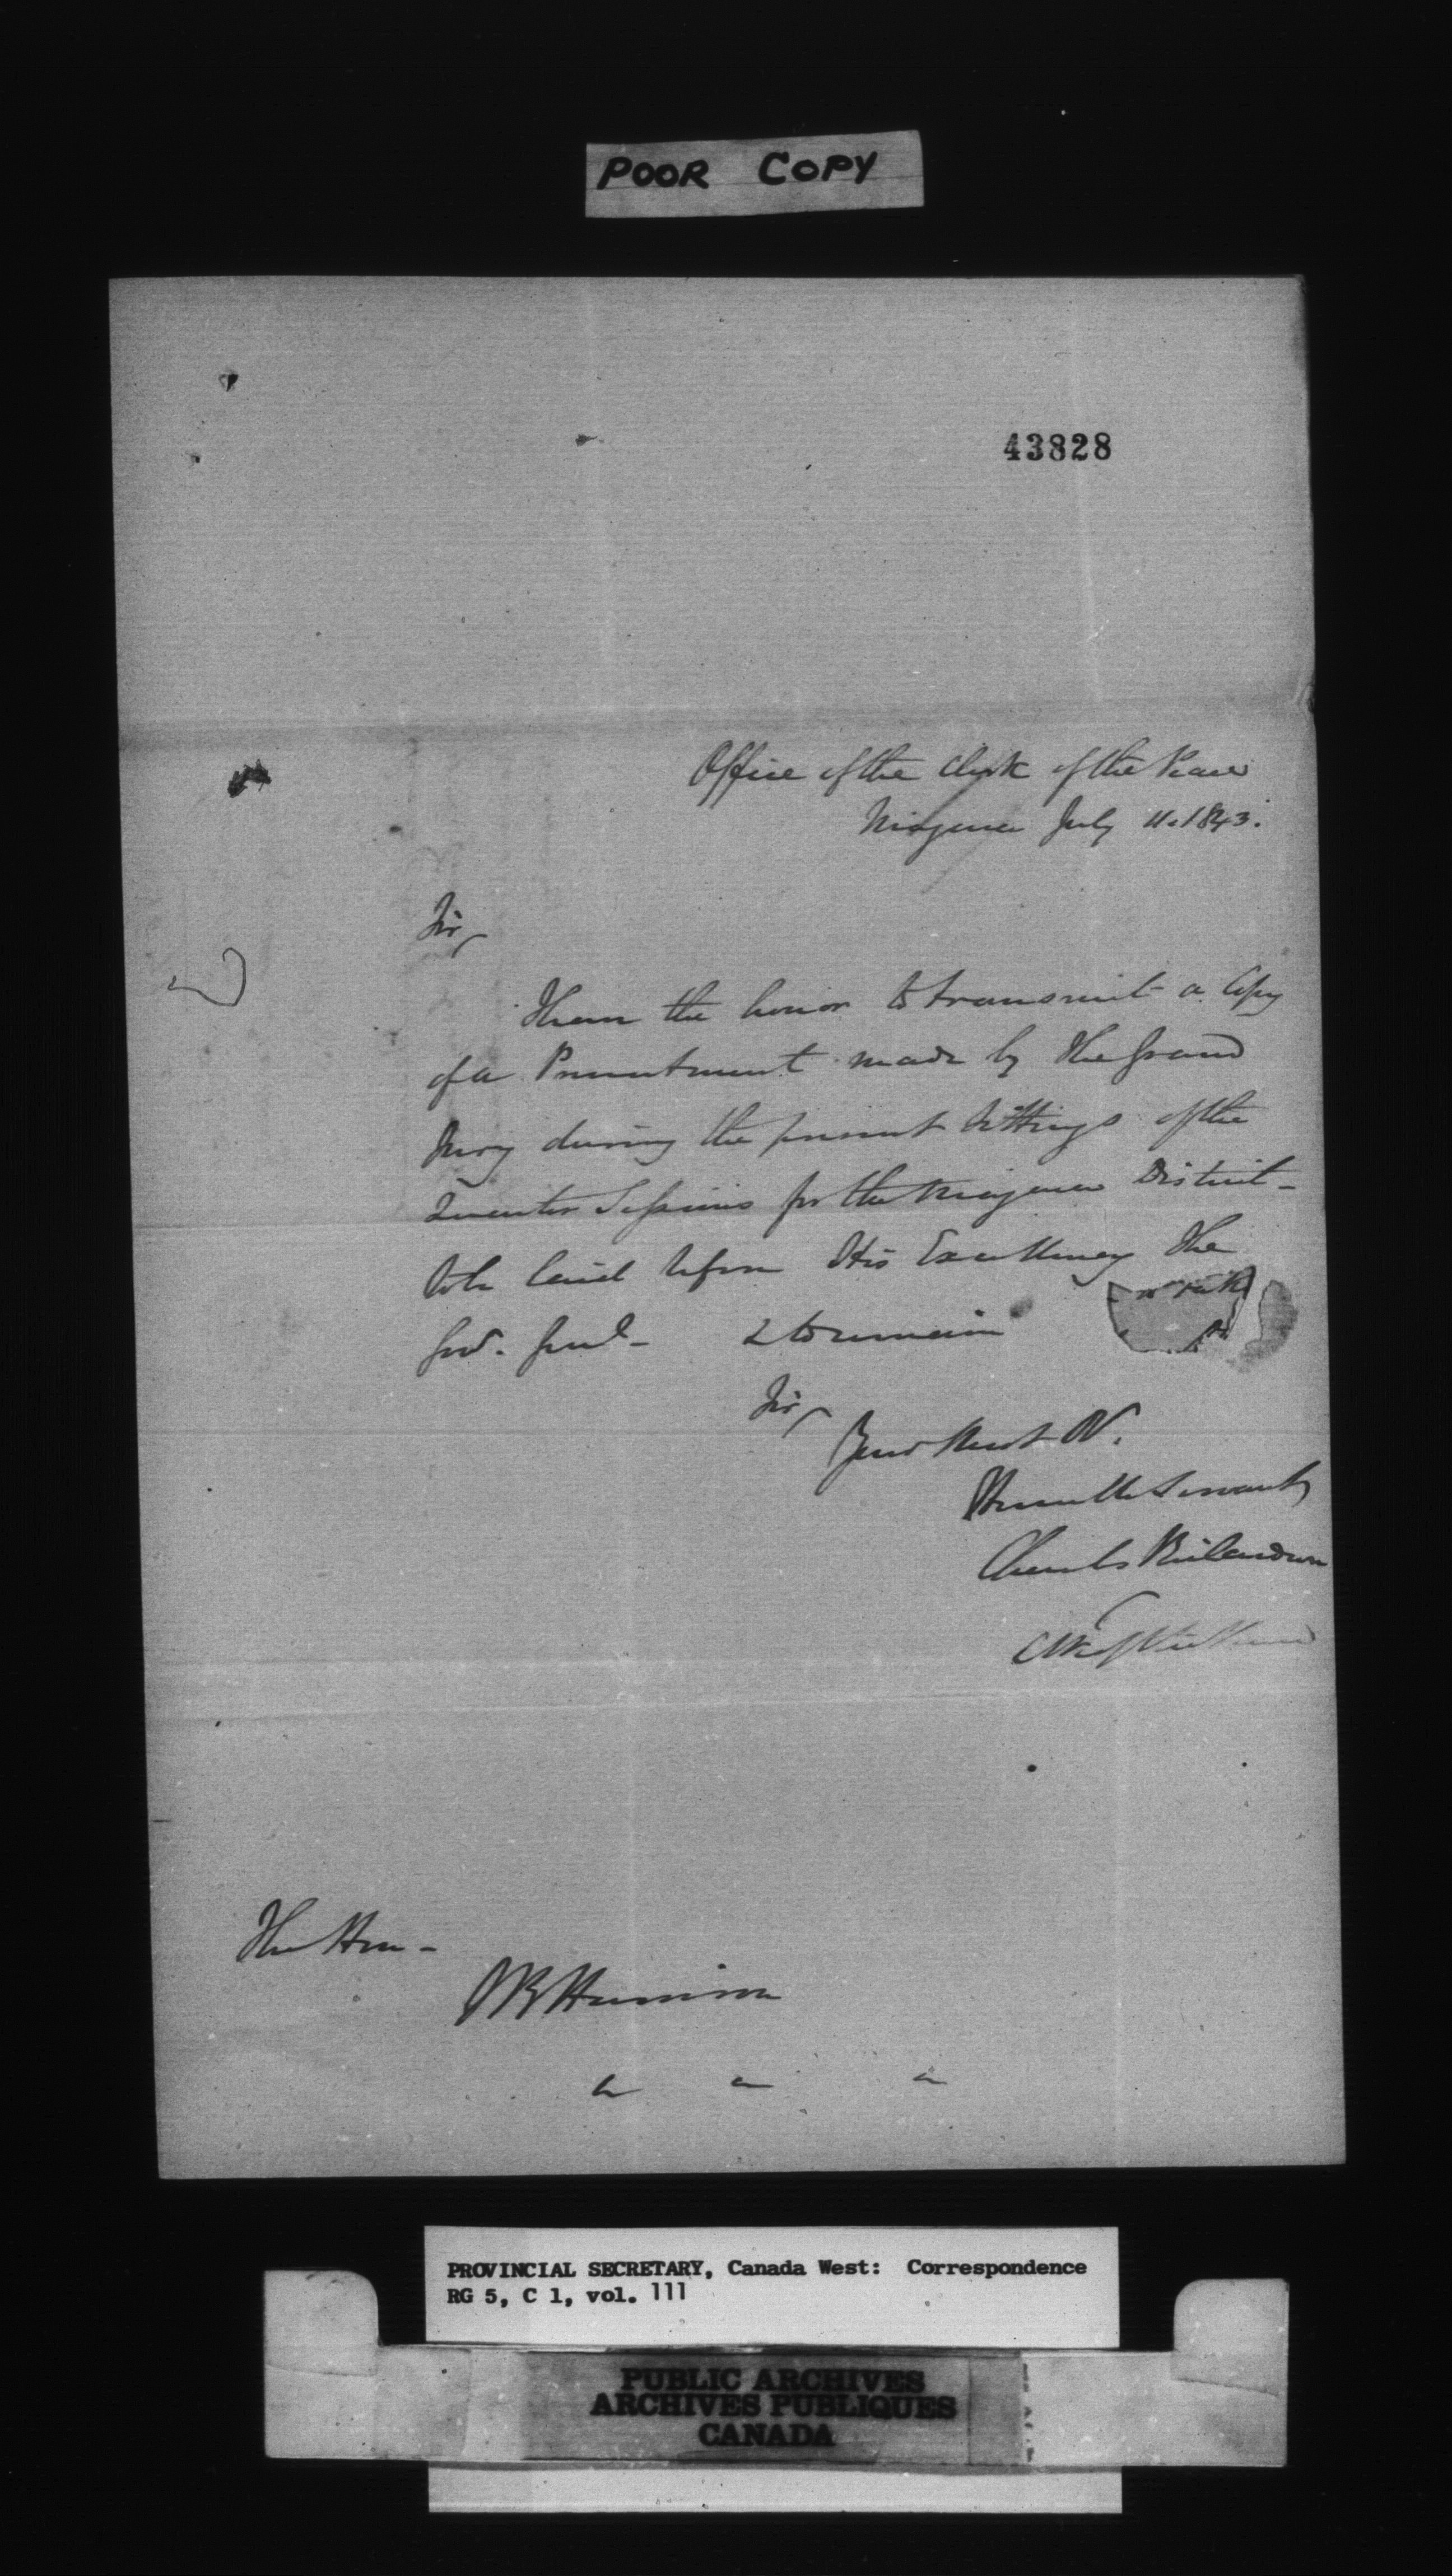 POOR COPY
43828
Office of the Clerk of the Peace
Niagara July 11. 1843.
Sir,
I have the honor to transmit a Copy
of a Presentment made by the Grand
Jury during the present Sittings of the
Quarter Sessions for the Niagara District -
to be laid before His Excellency the
Gov. Genl - & to remain
Sir,
Your Most Ob.
Humble Servant,
Charles Richardson
Clk of the Peace
The Hon -
S B Harrison
PROVINCIAL SECRETARY, Canada West: Correspondence
RG 5, C 1, vol. 111
PUBLIC ARCHIVES
ARCHIVES PUBLIQUES
CANADA